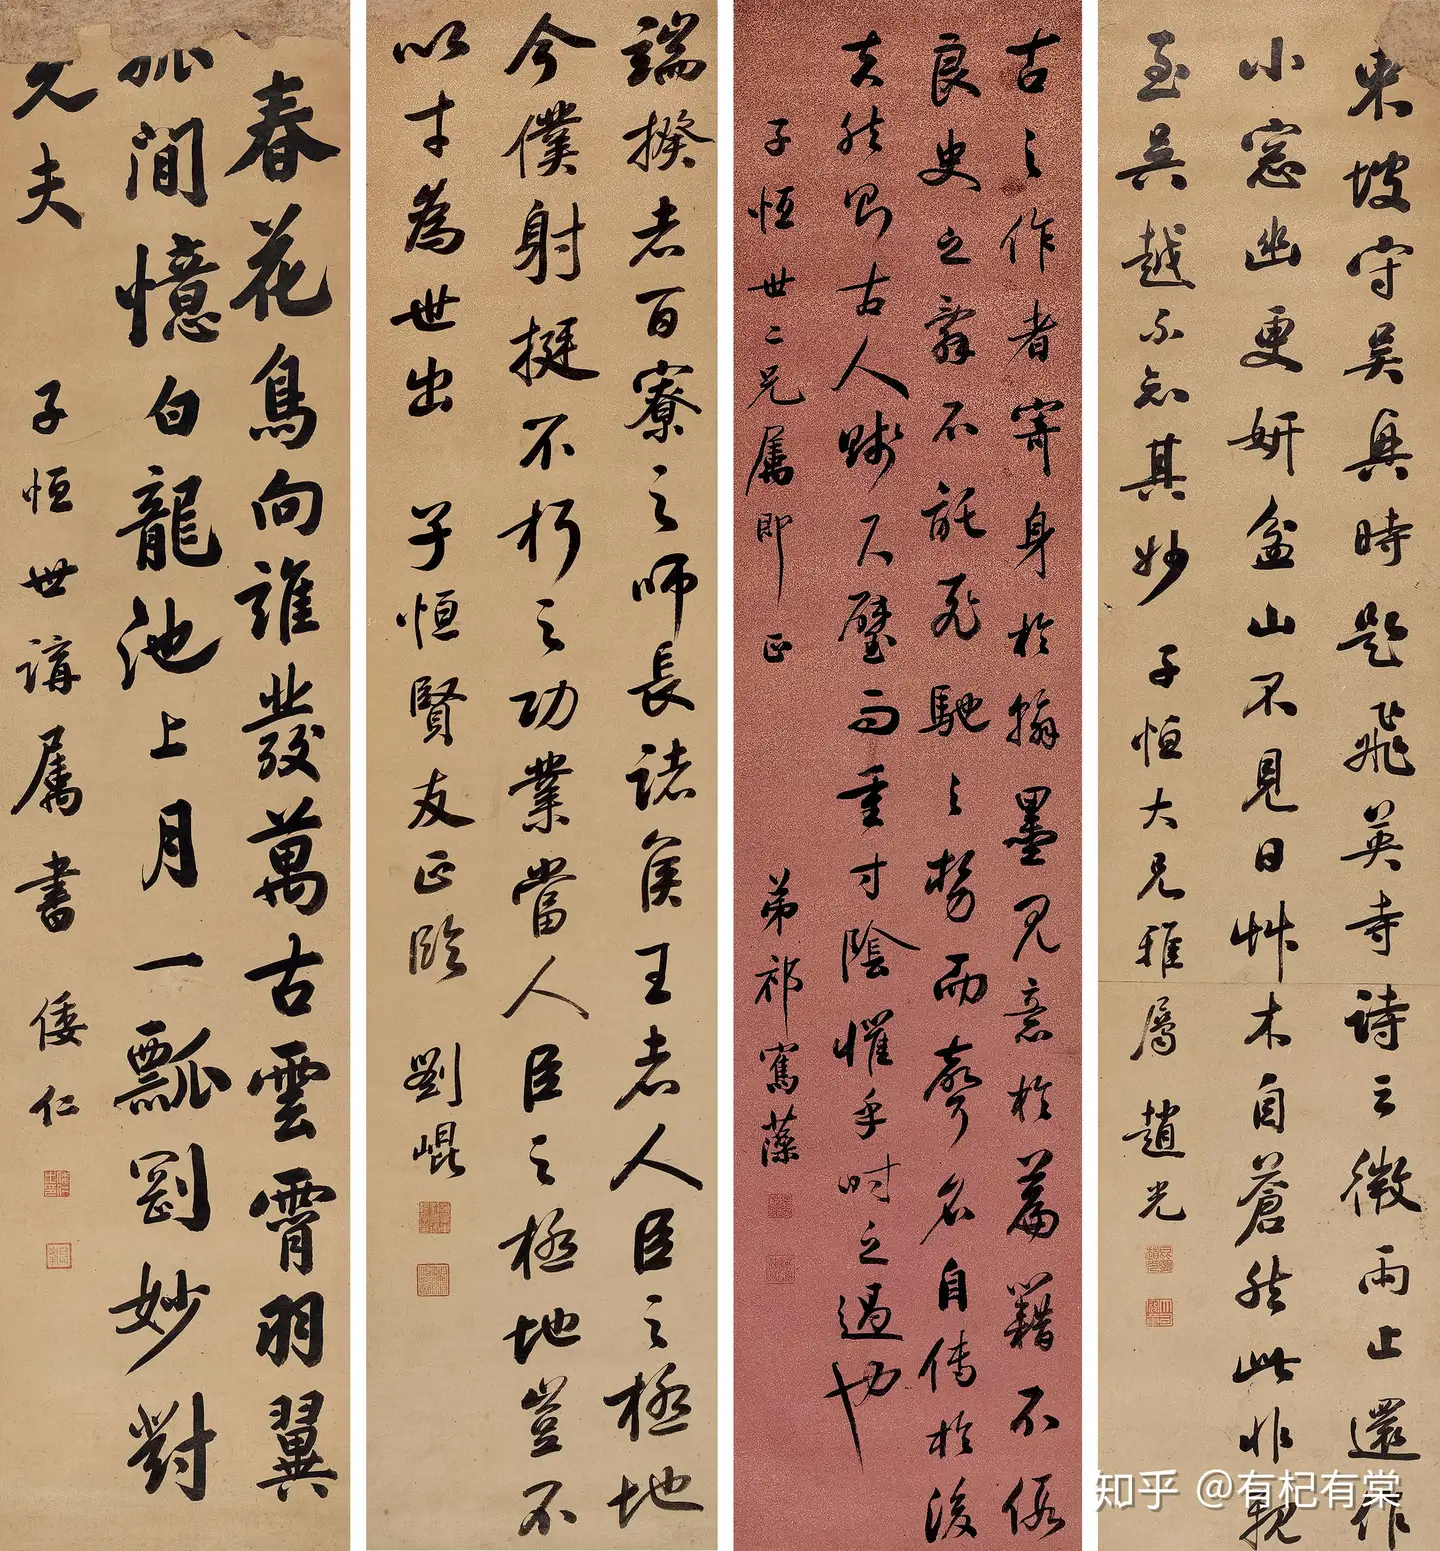 東坡守吴興時題飛英寺詩云微雨止還作
小窓幽更妍盆山不見日艸木自蒼然此非親
至吴越不知其妙
子恒大兄雅屬 趙光
古之作者寄身於翰墨見意於篇籍不假
良史之辭不託飛馳之勢而聲名自傳於後
夫然則古人賤尺璧而重寸陰懼乎時之過也
子恒世二兄屬即正
弟祁寯藻
端揆者百寮之師長諸侯王者人臣之極地
今僕射挺不朽之功業當人臣之極地豈不
以才為世出
子恒賢友正臨 劉崐
春花鳥向誰發萬古雲霄羽翼
孤間憶白龍池上月一瓢劉妙對
久夫
子恒世講屬書 倭仁
知乎 @有杞有棠